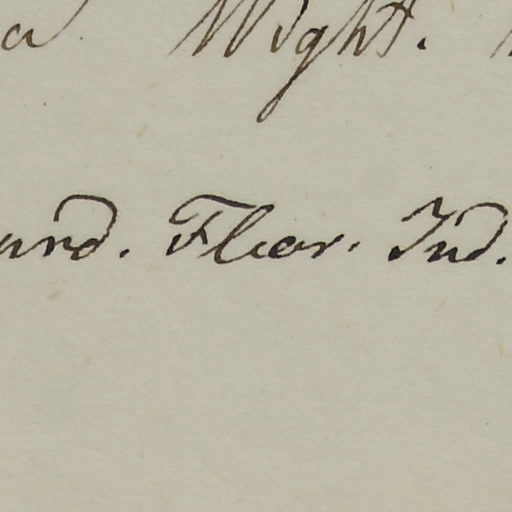 a Wight.
ard. Flor. Ind.